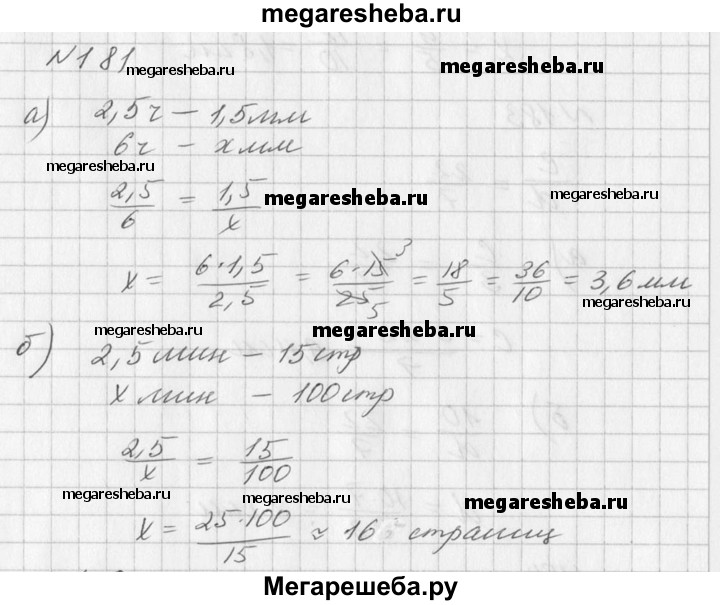 megaresheba.ru
N181 megaresheba.ru megaresheba.ru
а) 2,5ч – 1,5мм
6ч – x мм
megaresheba.ru megaresheba.ru megaresheba.ru
2,5/6 = 1,5/x
x = 6·1,5/2,5 = 6·15 3/25 5 = 18/5 = 36/10 = 3,6 мм
megaresheba.ru
megaresheba.ru megaresheba.ru
б) 2,5 мин – 15 стр
x мин – 100 стр
2,5/x = 15/100
megaresheba.ru megaresheba.ru megaresheba.ru
x = 25·100/15 ≈ 16 страниц
Мегарешеба.ру